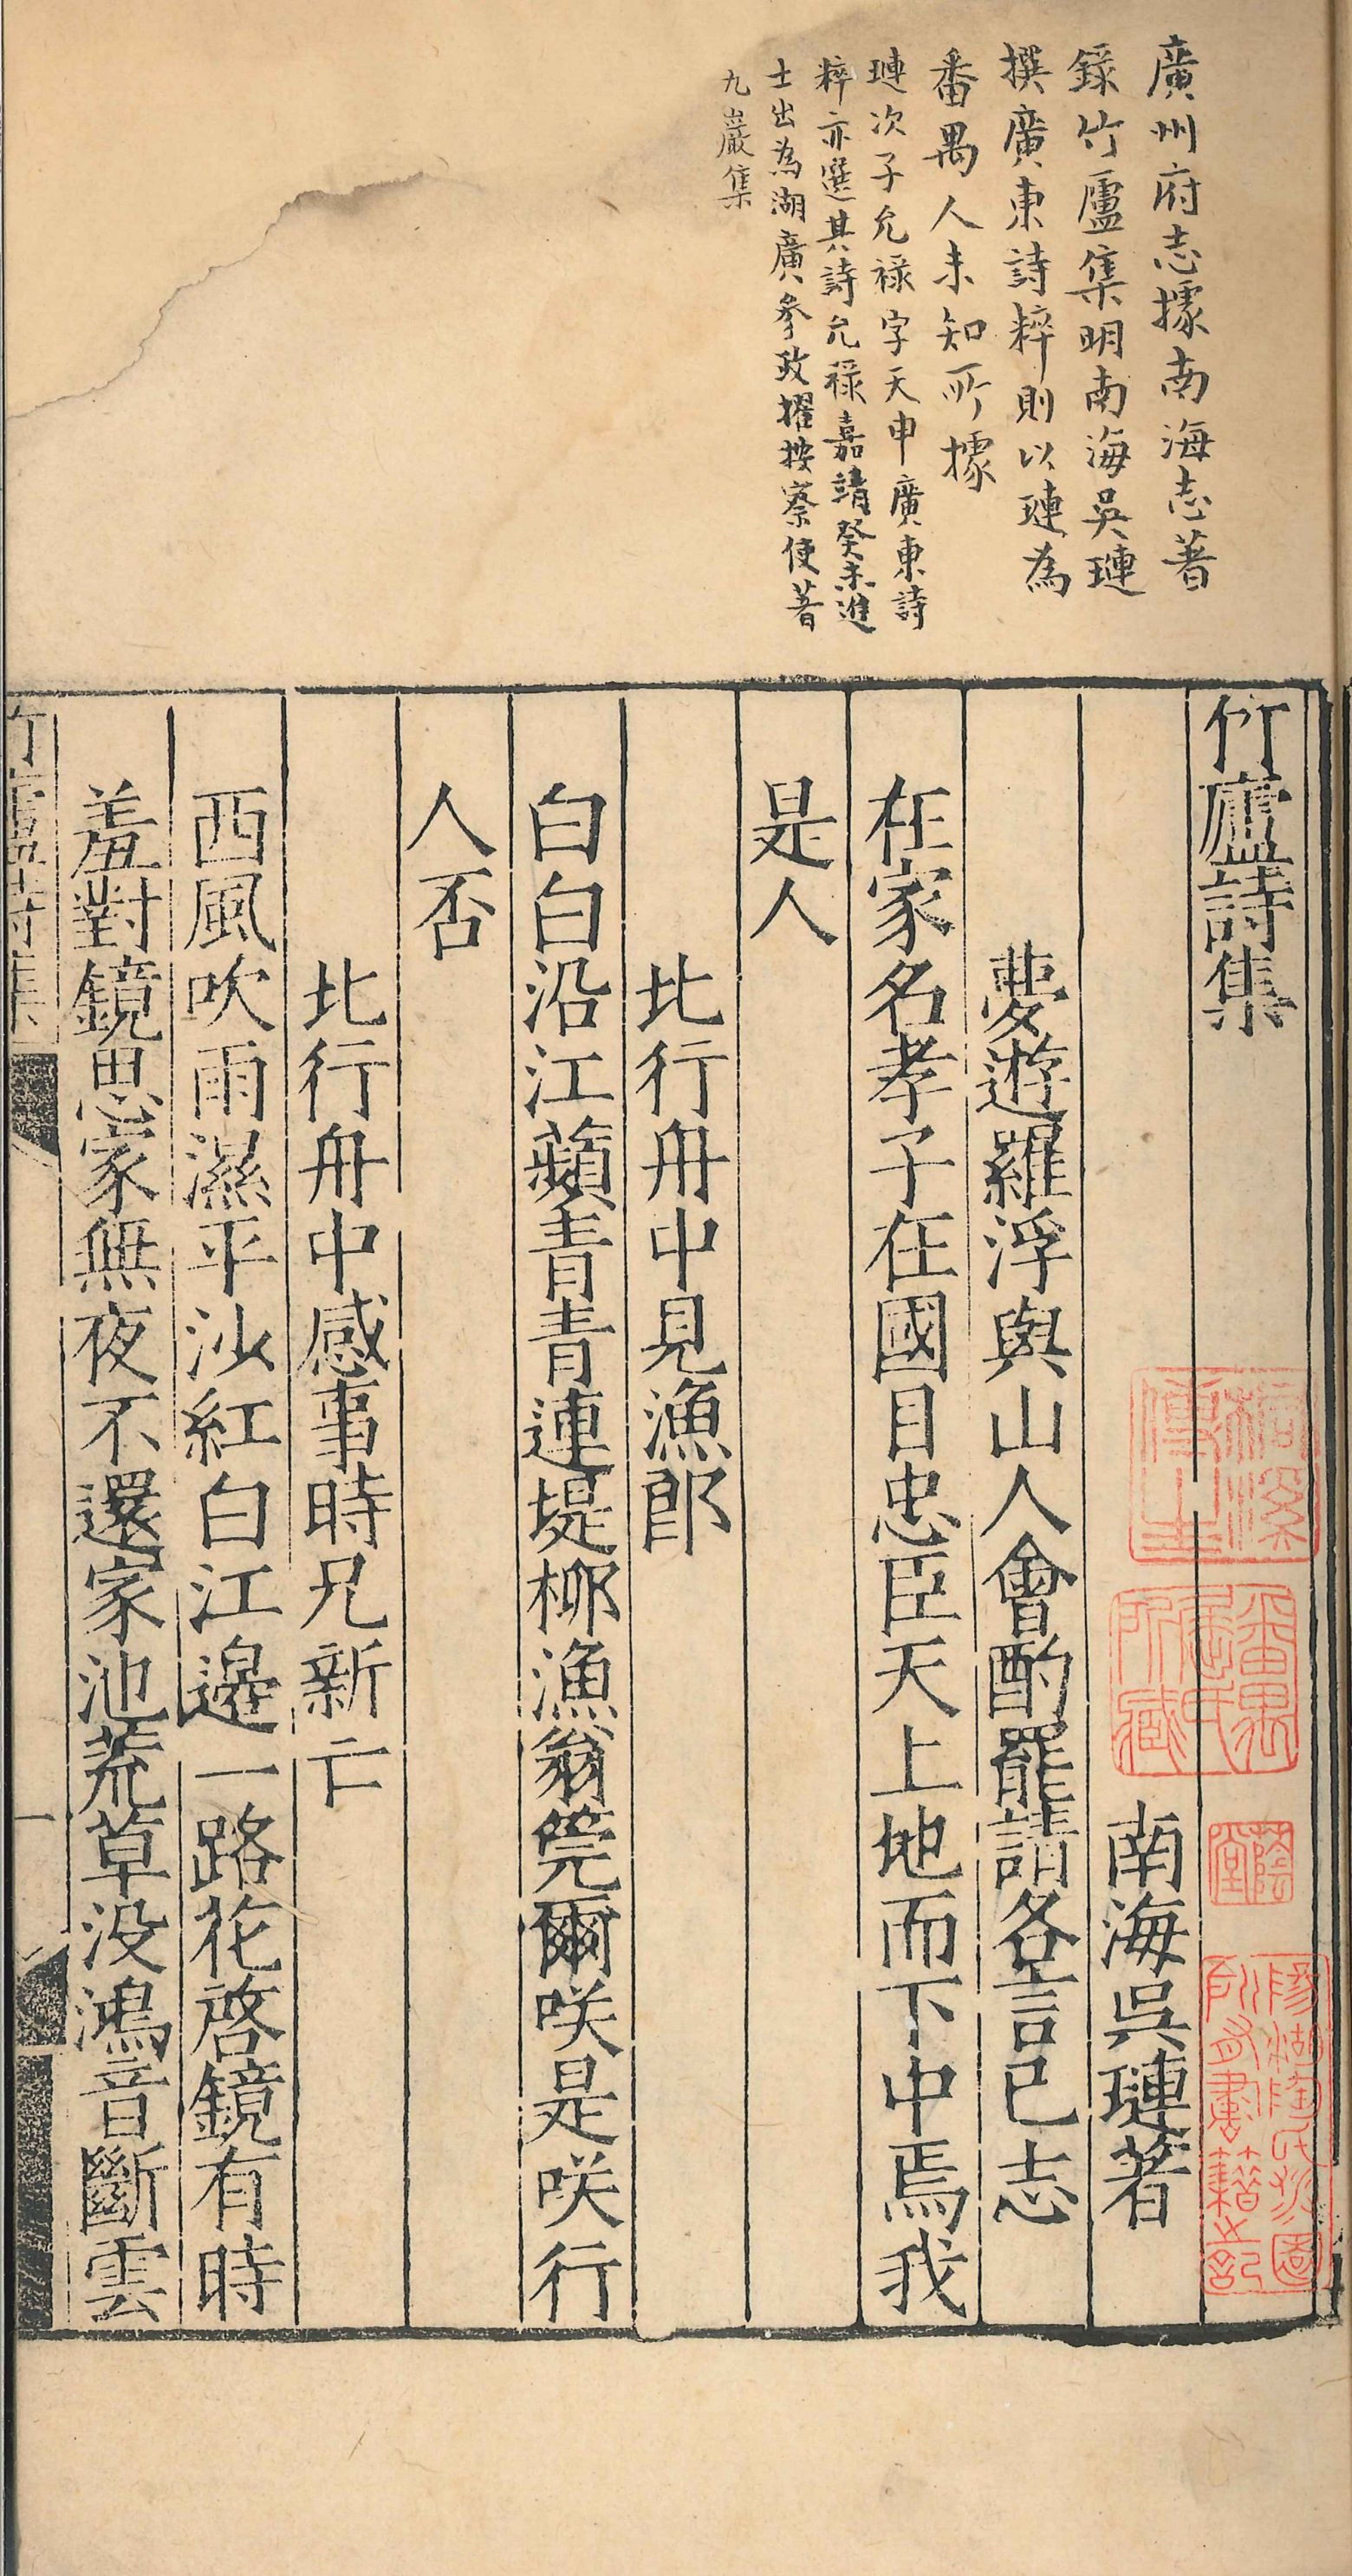 廣州府志據南海志著
錄竹廬集明南海吳璉
撰廣東詩粹則以璉為
番禺人未知所據
璉次子允祿字天申廣東詩
粹亦選其詩允祿嘉靖癸未進
士出為湖廣參政擢按察使著
九巖集
竹廬詩集
南海吳璉著
夢遊羅浮與山人會酌罷請各言已志
在家名孝子在國目忠臣天上地而下中焉我
是人
北行舟中見漁郎
白白沿江蘋青青連堤柳漁翁筦爾咲是咲行
人否
北行舟中感事時兄新亡
西風吹雨濕平沙紅白江邊一路花啓鏡有時
羞對鏡思家無夜不還家池荒草没鴻音斷雲
竹廬詩集
一
番禺屈氏所藏
蔭堂